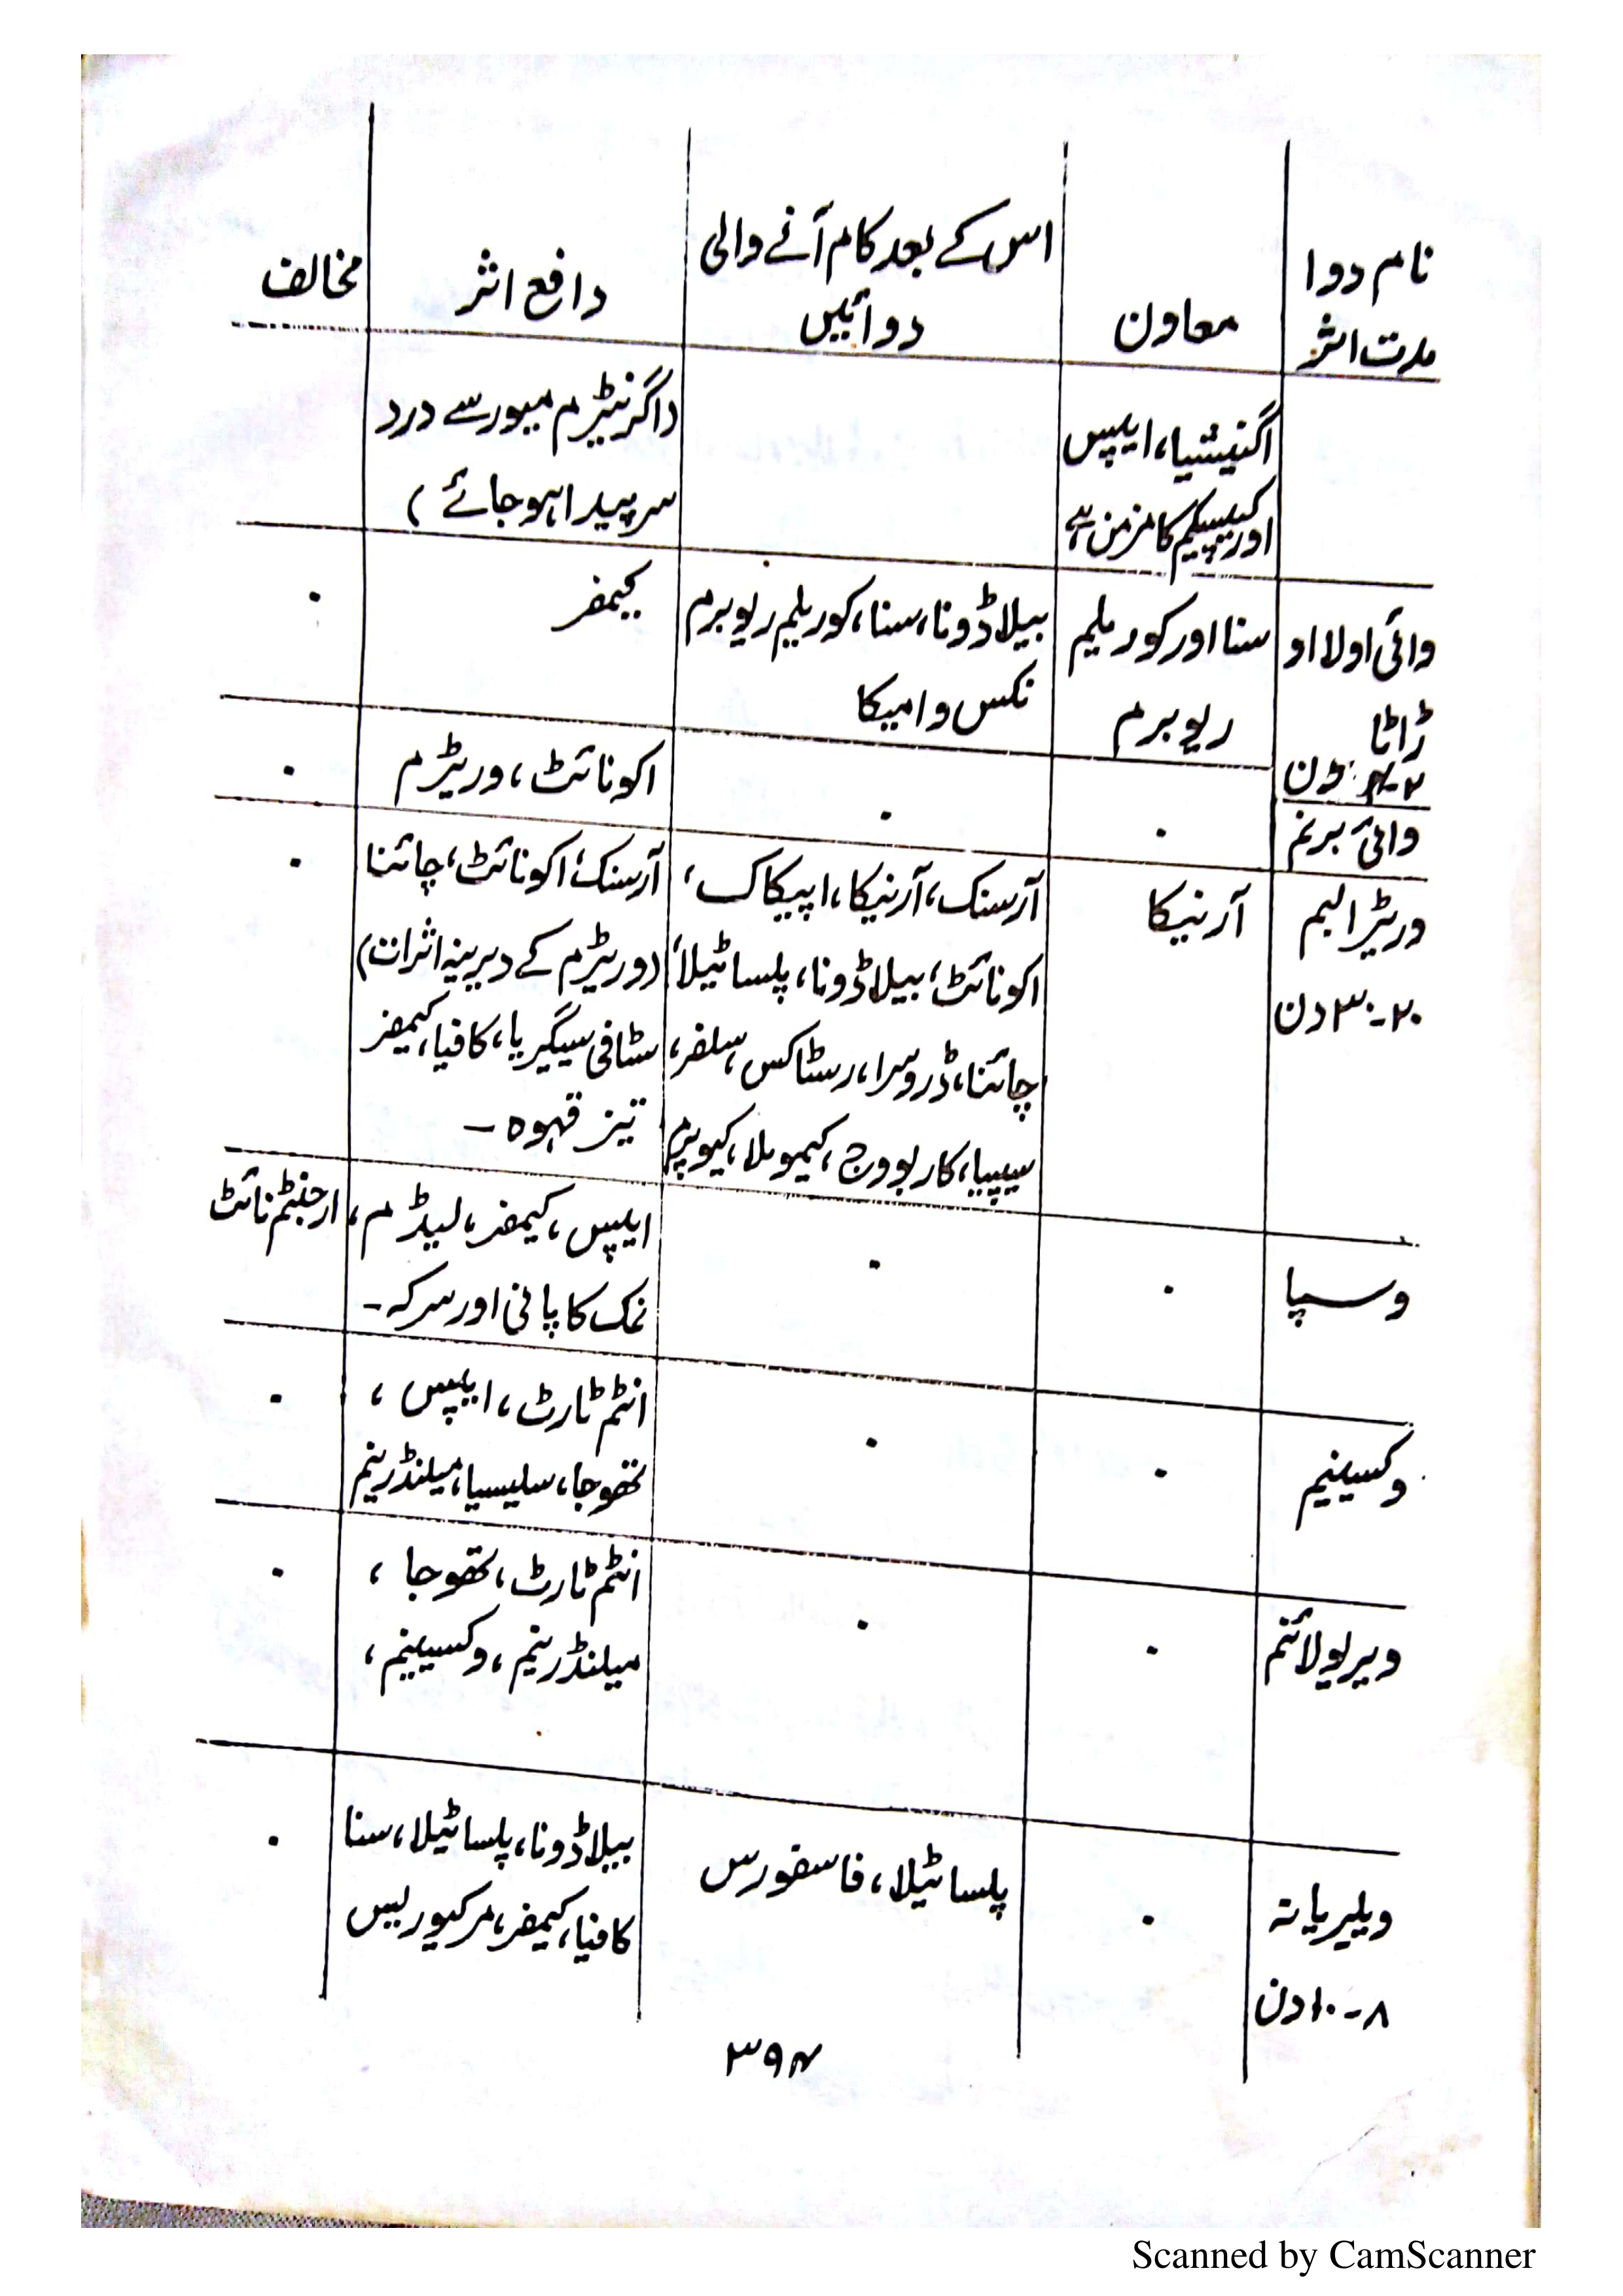 نام دوا
مدت اثر
معاون
اس کے بعد کام آنے والی
دوائیں
دافع اثر
مخالف
اگنیشیا، ایپس
اور کیپسیکم کا مزمن ہے
(اگر نیٹرم میور سے درد
سر پیدا ہو جائے)
وائی اولا او
ڈاٹا
دن
سنا اور کوریلیم
ریوبرم
بیلاڈونا، سنا، کوریلیم ریوبرم
نکس وامیکا
کیمفر
۰
وائی برنم
۰
۰
اکونائٹ، وریٹرم
۰
وریٹرالبم
۲۰-۳۰ دن
آرنیکا
آرسنک، آرنیکا، اپیکاک،
اکونائٹ، بیلاڈونا، پلساٹیلا،
چائنا، ڈروسرا، رسٹاکس، سلفر،
سیپیا، کاربوویج، کیمومیلا، کیوپرم
آرسنک، اکونائٹ، چائنا
(وریٹرم کے دیرینہ اثرات)
سٹافی سیگیریا، کافیا، کیمفر
تیز قہوہ -
۰
وسپا
۰
۰
ایپس، کیمفر، لیڈم،
نمک کا پانی اور سرکہ -
ارجنٹم نائٹ
وکسینیم
۰
۰
انٹم ٹارٹ، ایپس،
تھوجا، سلیسیا، میلنڈرینم
۰
ویریولائنم
۰
۰
انٹم ٹارٹ، تھوجا،
میلنڈرینم، وکسینیم،
۰
ویلیریانہ
۸-۱۰ دن
۰
پلساٹیلا، فاسفورس
بیلاڈونا، پلساٹیلا، سنا
کافیا، کیمفر، مرکیوریس
۰
۳۹۴
Scanned by CamScanner